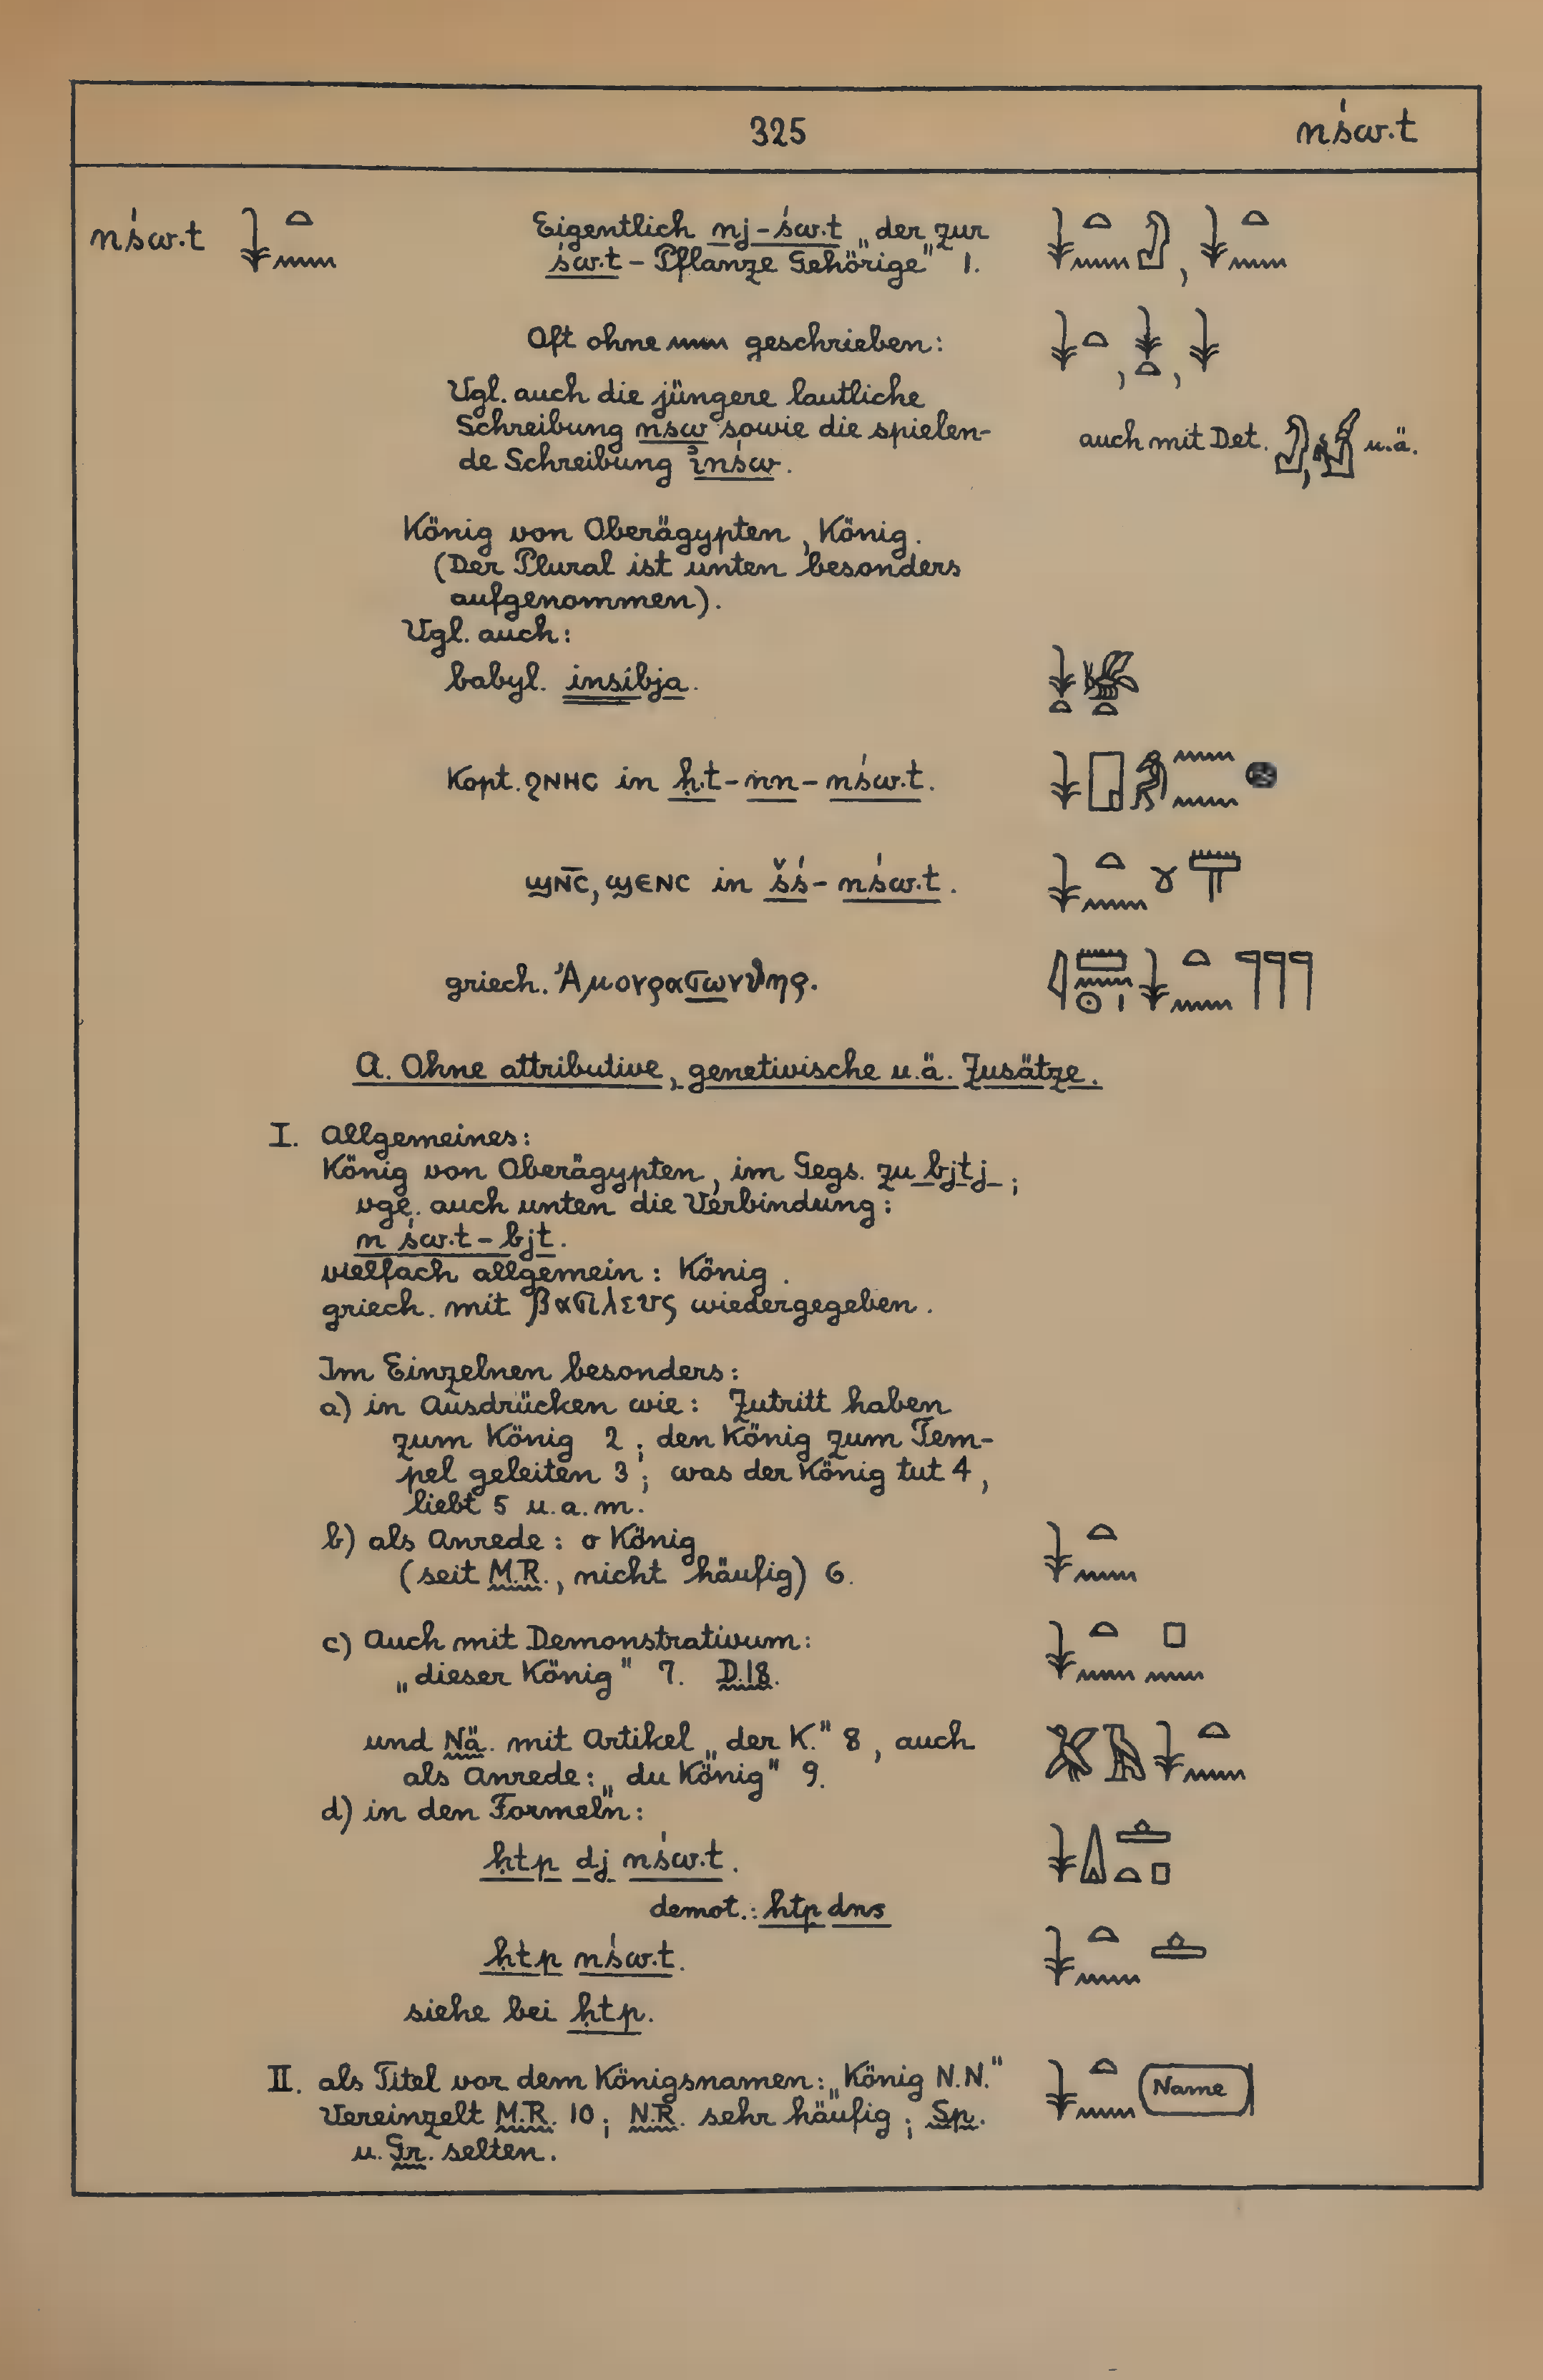 325 nśw.t
nśw.t 𓇓𓏏𓈖 Eigentlich nj-św.t „der zur
św.t-Pflanze Gehörige" 1.
Oft ohne 𓈖 geschrieben:
Vgl. auch die jüngere lautliche
Schreibung nsw sowie die spielen-
de Schreibung i҆nśw. auch mit Det. u.ä.
König von Oberägypten, König.
(Der Plural ist unten besonders
aufgenommen).
Vgl. auch:
babyl. insibja.
Kopt. ϩⲛⲏⲥ in ḥ.t-nn-nśw.t.
ϣⲛ̄ⲥ, ϣⲉⲛⲥ in šś-nśw.t.
griech. Ἀμονρασωνθης.
A. Ohne attributive, genetivische u.ä. Zusätze.
I. Allgemeines:
König von Oberägypten, im Gegs. zu bjtj;
vgl. auch unten die Verbindung:
n św.t-bjt.
vielfach allgemein: König.
griech. mit βασιλευς wiedergegeben.
Im Einzelnen besonders:
a) in Ausdrücken wie: Zutritt haben
zum König 2; den König zum Tem-
pel geleiten 3; was der König tut 4,
liebt 5 u.a.m.
b) als Anrede: o König
(seit M.R., nicht häufig) 6. 𓇓𓏏𓈖
c) Auch mit Demonstrativum:
„dieser König" 7. D.18. 𓇓𓏏𓈖𓊪𓈖
und Nä. mit Artikel „der K." 8, auch
als Anrede: „du König" 9. 𓅮𓄿𓇓𓏏𓈖
d) in den Formeln:
ḥtp dj nśw.t. 𓇓𓏙𓊵𓏏𓊪
demot.: ḥtp dns
ḥtp nśw.t. 𓇓𓏏𓈖𓊵
siehe bei ḥtp.
II. als Titel vor dem Königsnamen: „König N.N." 𓇓𓏏𓈖 Name
Vereinzelt M.R. 10; N.R. sehr häufig; Sp.
u. Gr. selten.